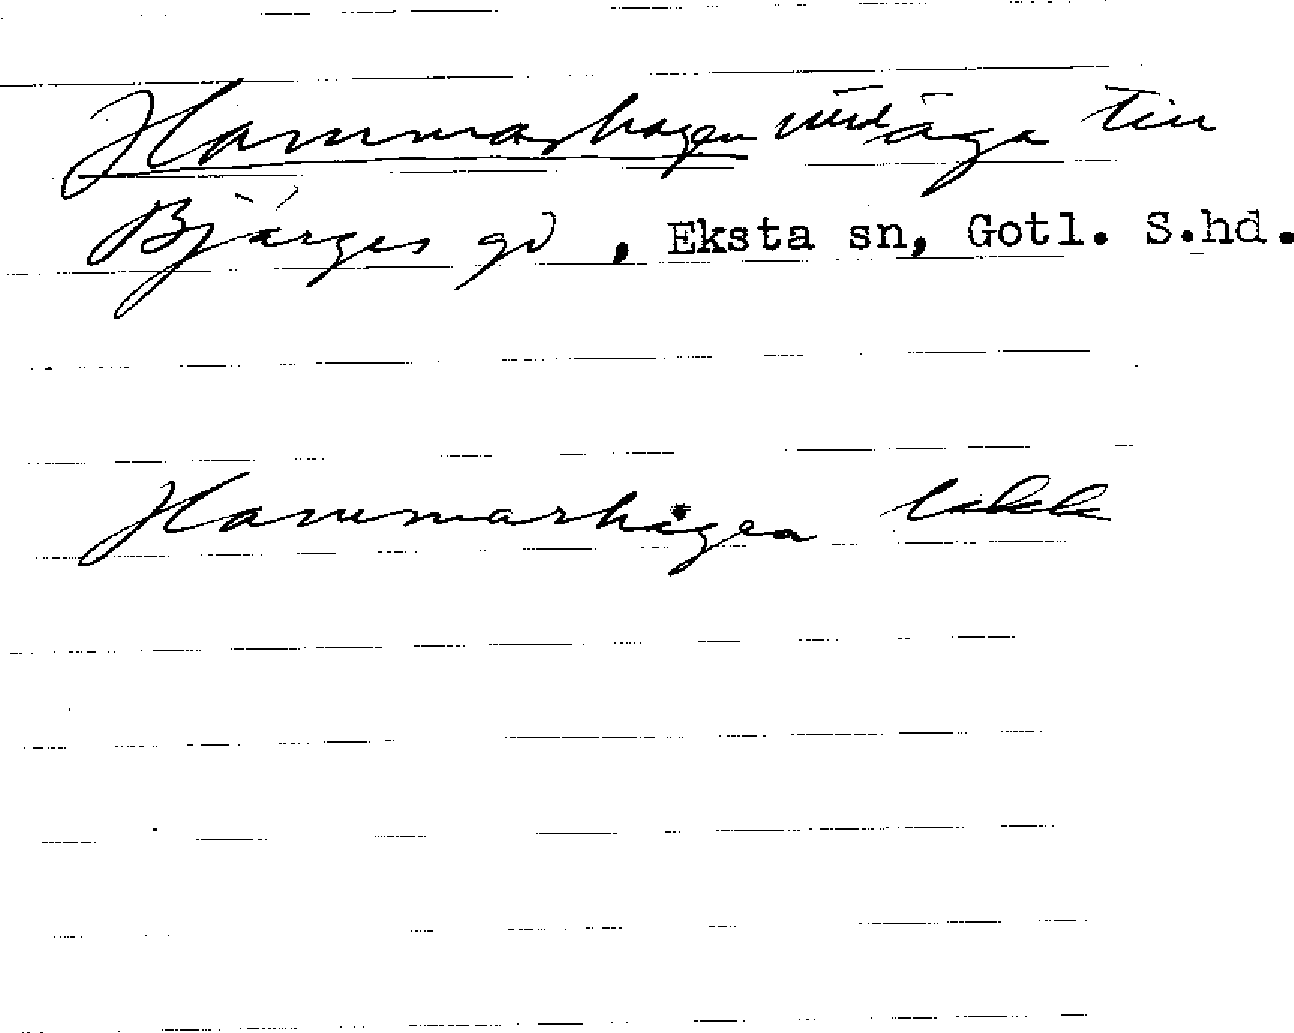 Hammarhagen undäga till
Bjärges gd, Eksta sn, Gotl. S.hd.
Hammarhagen